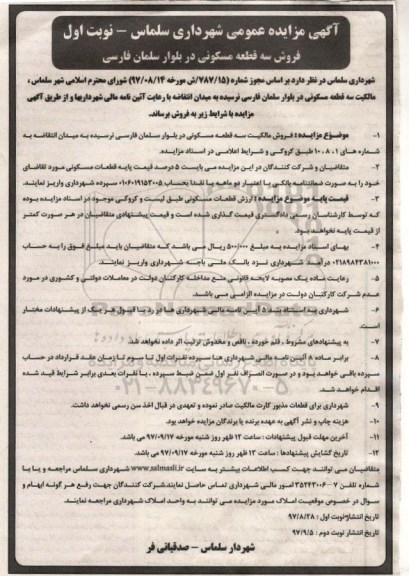 آگهی مزایده عمومی شهرداری سلماس – نوبت اول
فروش سه قطعه مسکونی در بلوار سلمان فارسی
شهرداری سلماس در نظر دارد بر اساس مجوز شماره (۷۸۷/۱۵/ش مورخه ۹۷/۰۸/۱۴) شورای محترم اسلامی شهر سلماس ،
مالکیت سه قطعه مسکونی در بلوار سلمان فارسی نرسیده به میدان انتفاضه با رعایت آئین نامه مالی شهرداریها و از طریق آگهی
مزایده با شرایط زیر به فروش برساند.
۱- موضوع مزایده : فروش مالکیت سه قطعه مسکونی در بلوار سلمان فارسی نرسیده به میدان انتفاضه به
شماره های ۱ ، ۸ ، ۱۰ طبق کروکی و شرایط اعلامی در اسناد مزایده.
۲- متقاضیان و شرکت کنندگان در این مزایده می بایست ۵ درصد قیمت پایه قطعات مسکونی مورد تقاضای
خود را به صورت ضمانتنامه بانکی با اعتبار دو ماهه یا نقدا بحساب ۰۱۰۶۰۱۹۱۵۳۰۰۵ سپرده شهرداری واریز نمایند.
۳- قیمت پایه موضوع مزایده : ارزش قطعات مسکونی طبق لیست و کروکی موجود در اسناد مزایده بوده
که توسط کارشناسان رسمی دادگستری قیمت گذاری شده است و قیمت پیشنهادی متقاضیان در هر صورت کمتر
از قیمت پایه نخواهد بود.
۴- بهای اسناد مزایده به مبلغ ۵۰۰/۰۰۰ ریال می باشد که متقاضیان باید مبلغ فوق را به حساب
۰۲۱۸۹۸۴۳۸۱۰۰۰ درآمد شهرداری نزد بانک ملی باجه شهرداری واریز نمایند.
۵- رعایت ماده یک مصوبه لایحه قانونی منع مداخله کارکنان دولت در معاملات دولتی و کشوری در مورد
عدم شرکت کارکنان دولت در مزایده الزامی می باشد.
۶- شهرداری به استناد بند ۵ آیین نامه مالی شهرداری ها در رد یا قبول هر یک از پیشنهادات مختار
است.
۷- به پیشنهادهای مشروط ، قلم خورده ، ناقص و مخدوش ترتیب اثر داده نخواهد شد.
۸- برابر ماده ۸ آئین نامه مالی شهرداری ها سپرده نفرات اول تا سوم تا زمان عقد قرارداد در حساب
سپرده باقی خواهد بود و در صورت انصراف نفر اول ضمن ضبط سپرده ، با نفرات بعدی برابر شرایط قید شده
اقدام خواهد شد.
۹- شهرداری برای قطعات مذبور کارت مالکیت صادر نموده و تعهدی در قبال اخذ سن رسمی نخواهد داشت.
۱۰- هزینه چاپ و نشر آگهی به عهده برنده یا برندگان مزایده خواهد بود.
۱۱- آخرین مهلت قبول پیشنهادات : ساعت ۱۲ ظهر روز شنبه مورخه ۹۷/۰۹/۱۷ می باشد.
۱۲- تاریخ گشایش پیشنهادها : ساعت ۱۳ ظهر روز شنبه مورخه ۹۷/۰۹/۱۷ می باشد.
متقاضیان می توانند جهت کسب اطلاعات بیشتر به سایت www.salmasli.ir شهرداری سلماس مراجعه و یا با
شماره تلفن ۷-۳۵۲۴۳۰۰۶ امور مالی شهرداری تماس حاصل نمایند.شرکت کنندگان جهت رفع هر گونه ابهام و
سوال در خصوص موقعیت املاک مورد مزایده می توانند به واحد املاک شهرداری مراجعه نمایند.
تاریخ انتشار نوبت اول : ۹۷/۸/۲۸
تاریخ انتشار نوبت دوم : ۹۷/۹/۵
شهردار سلماس – صدقیانی فر
۰۲۱-۸۸۳۴۹۶۷۰-۵